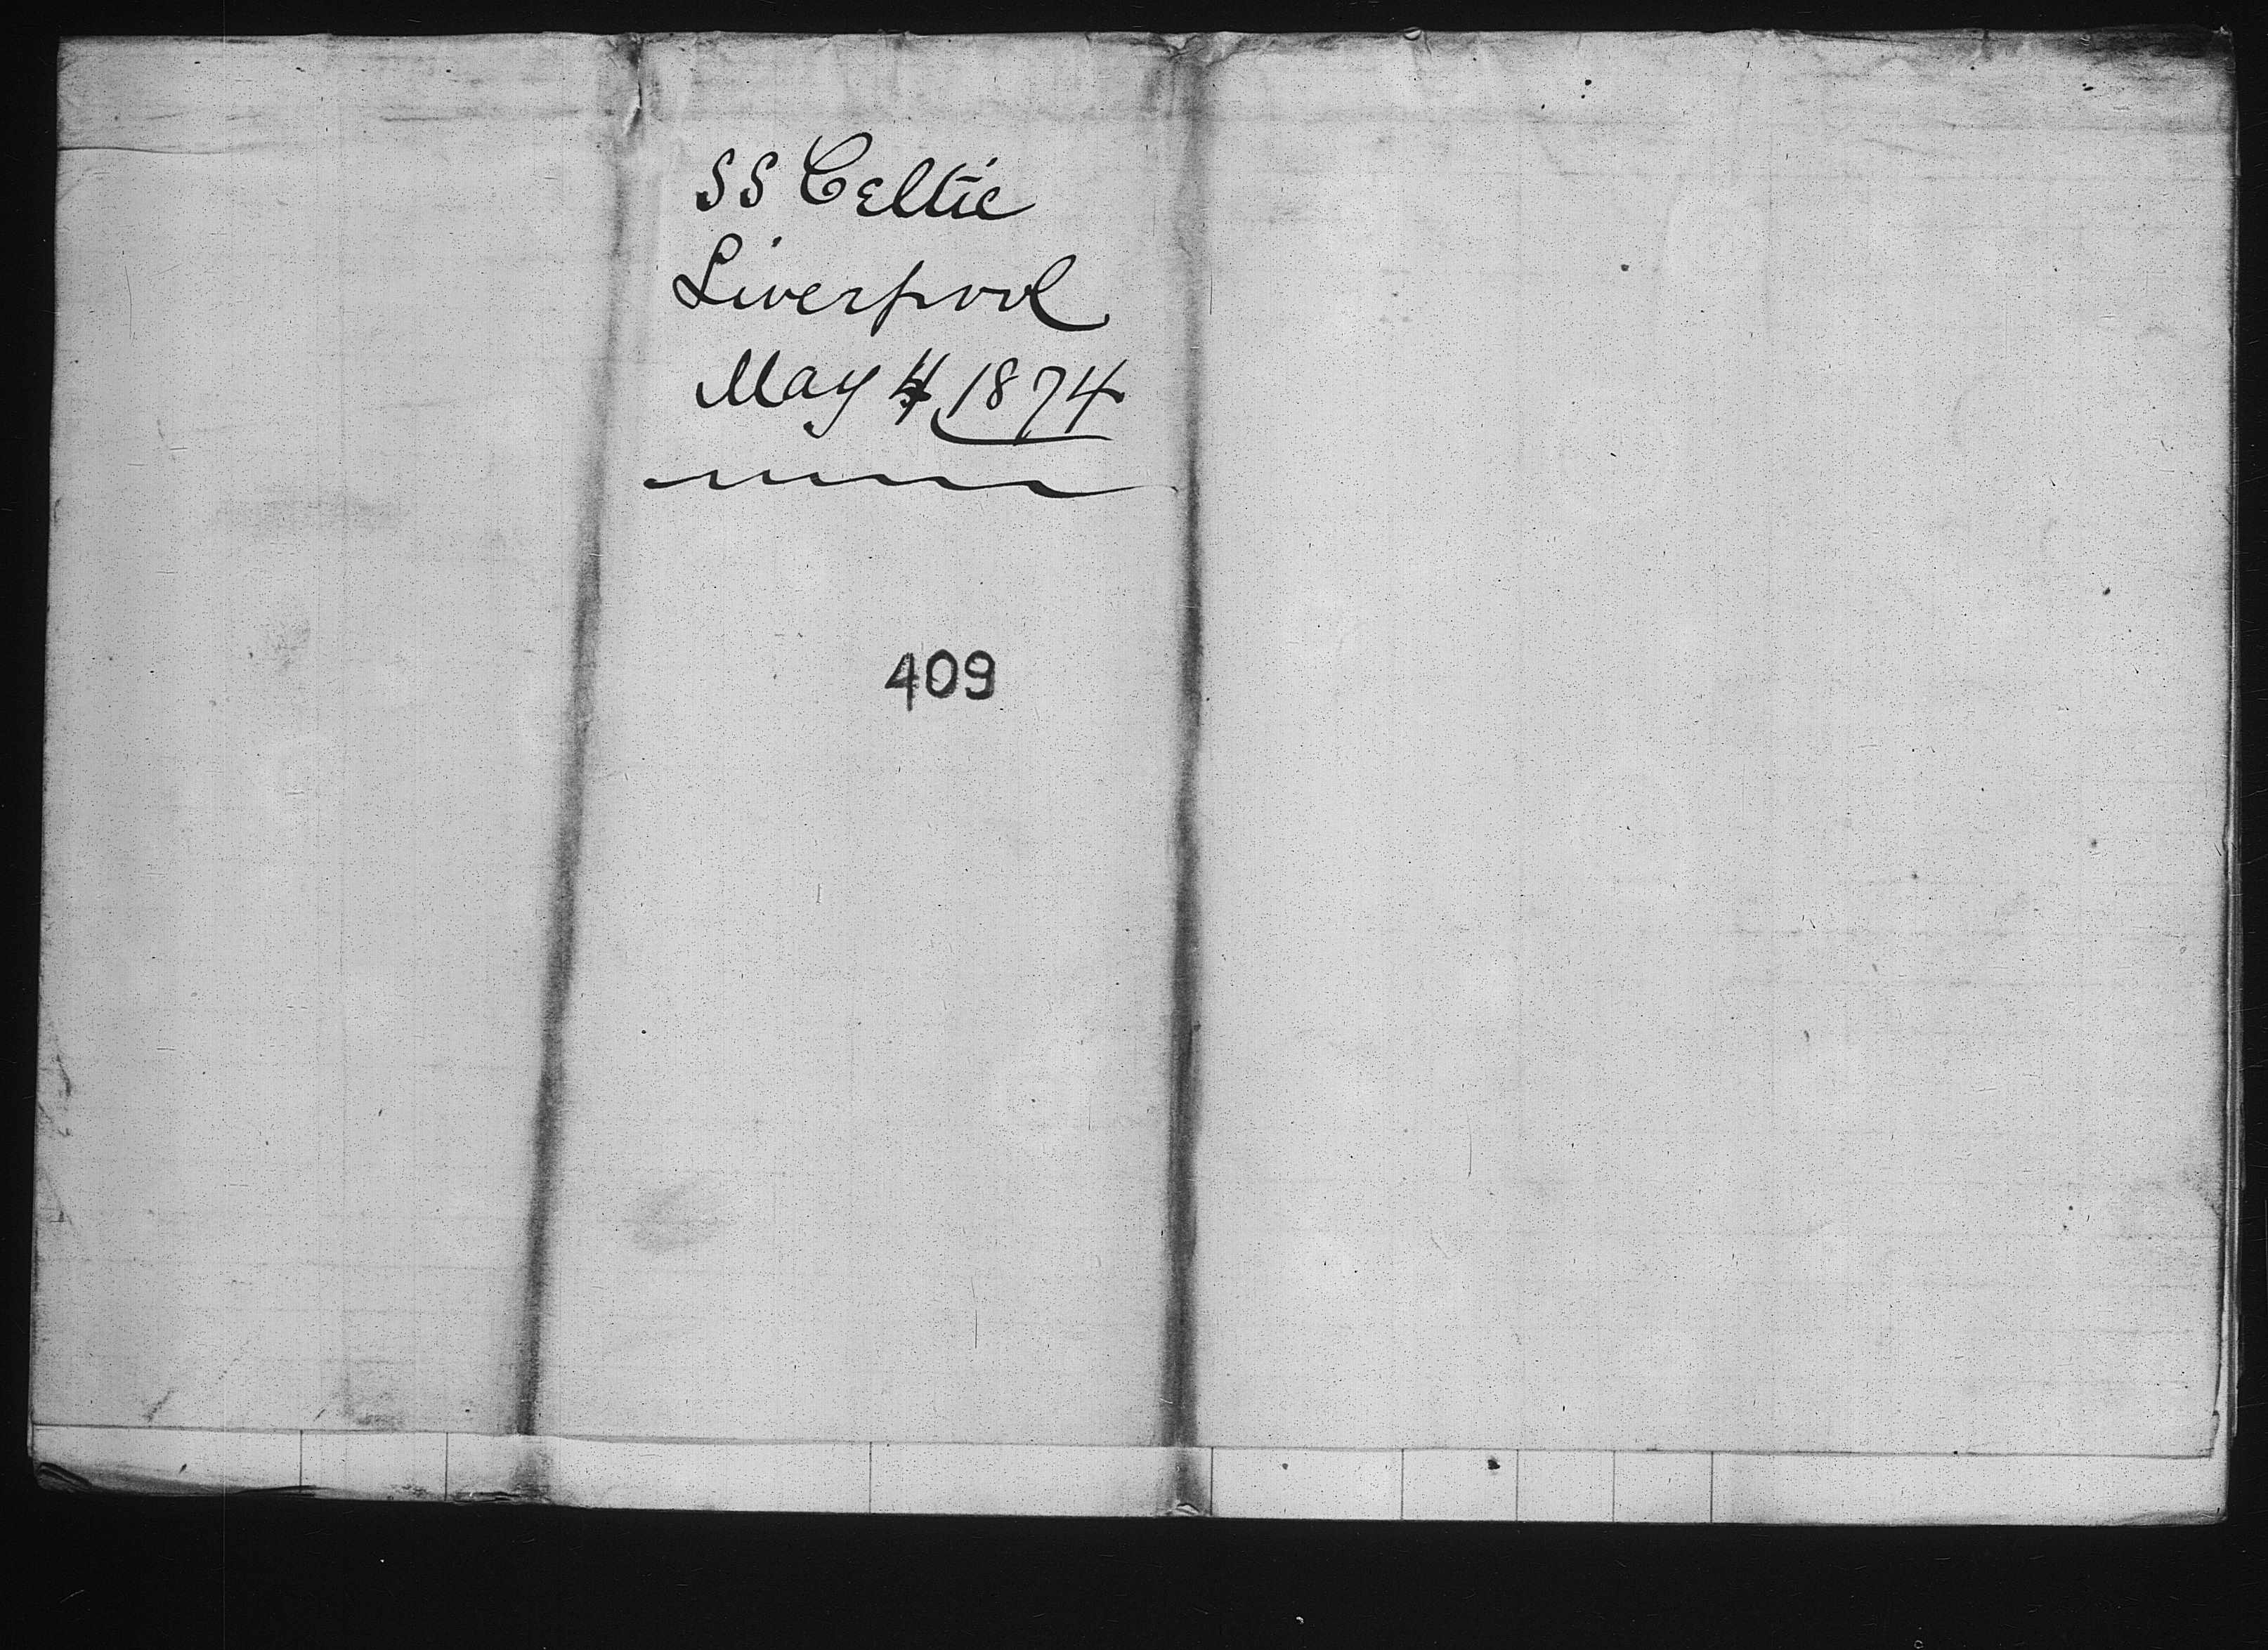 SS Celtic
Liverpool
May 4 1874
409